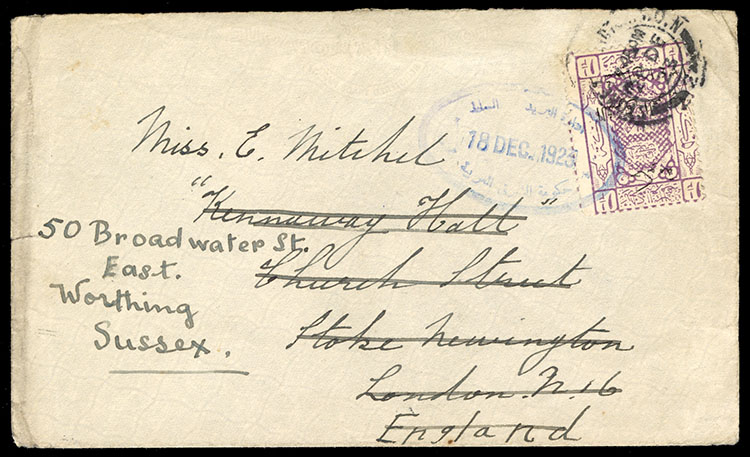 Miss. E. Mitchel
"Kennaway Hall"
Church Street
Stoke Newington
London. N. 16
England
50 Broadwater St.
East.
Worthing
Sussex.
السلط
18 DEC. 1923
حكومة الشرق العربية